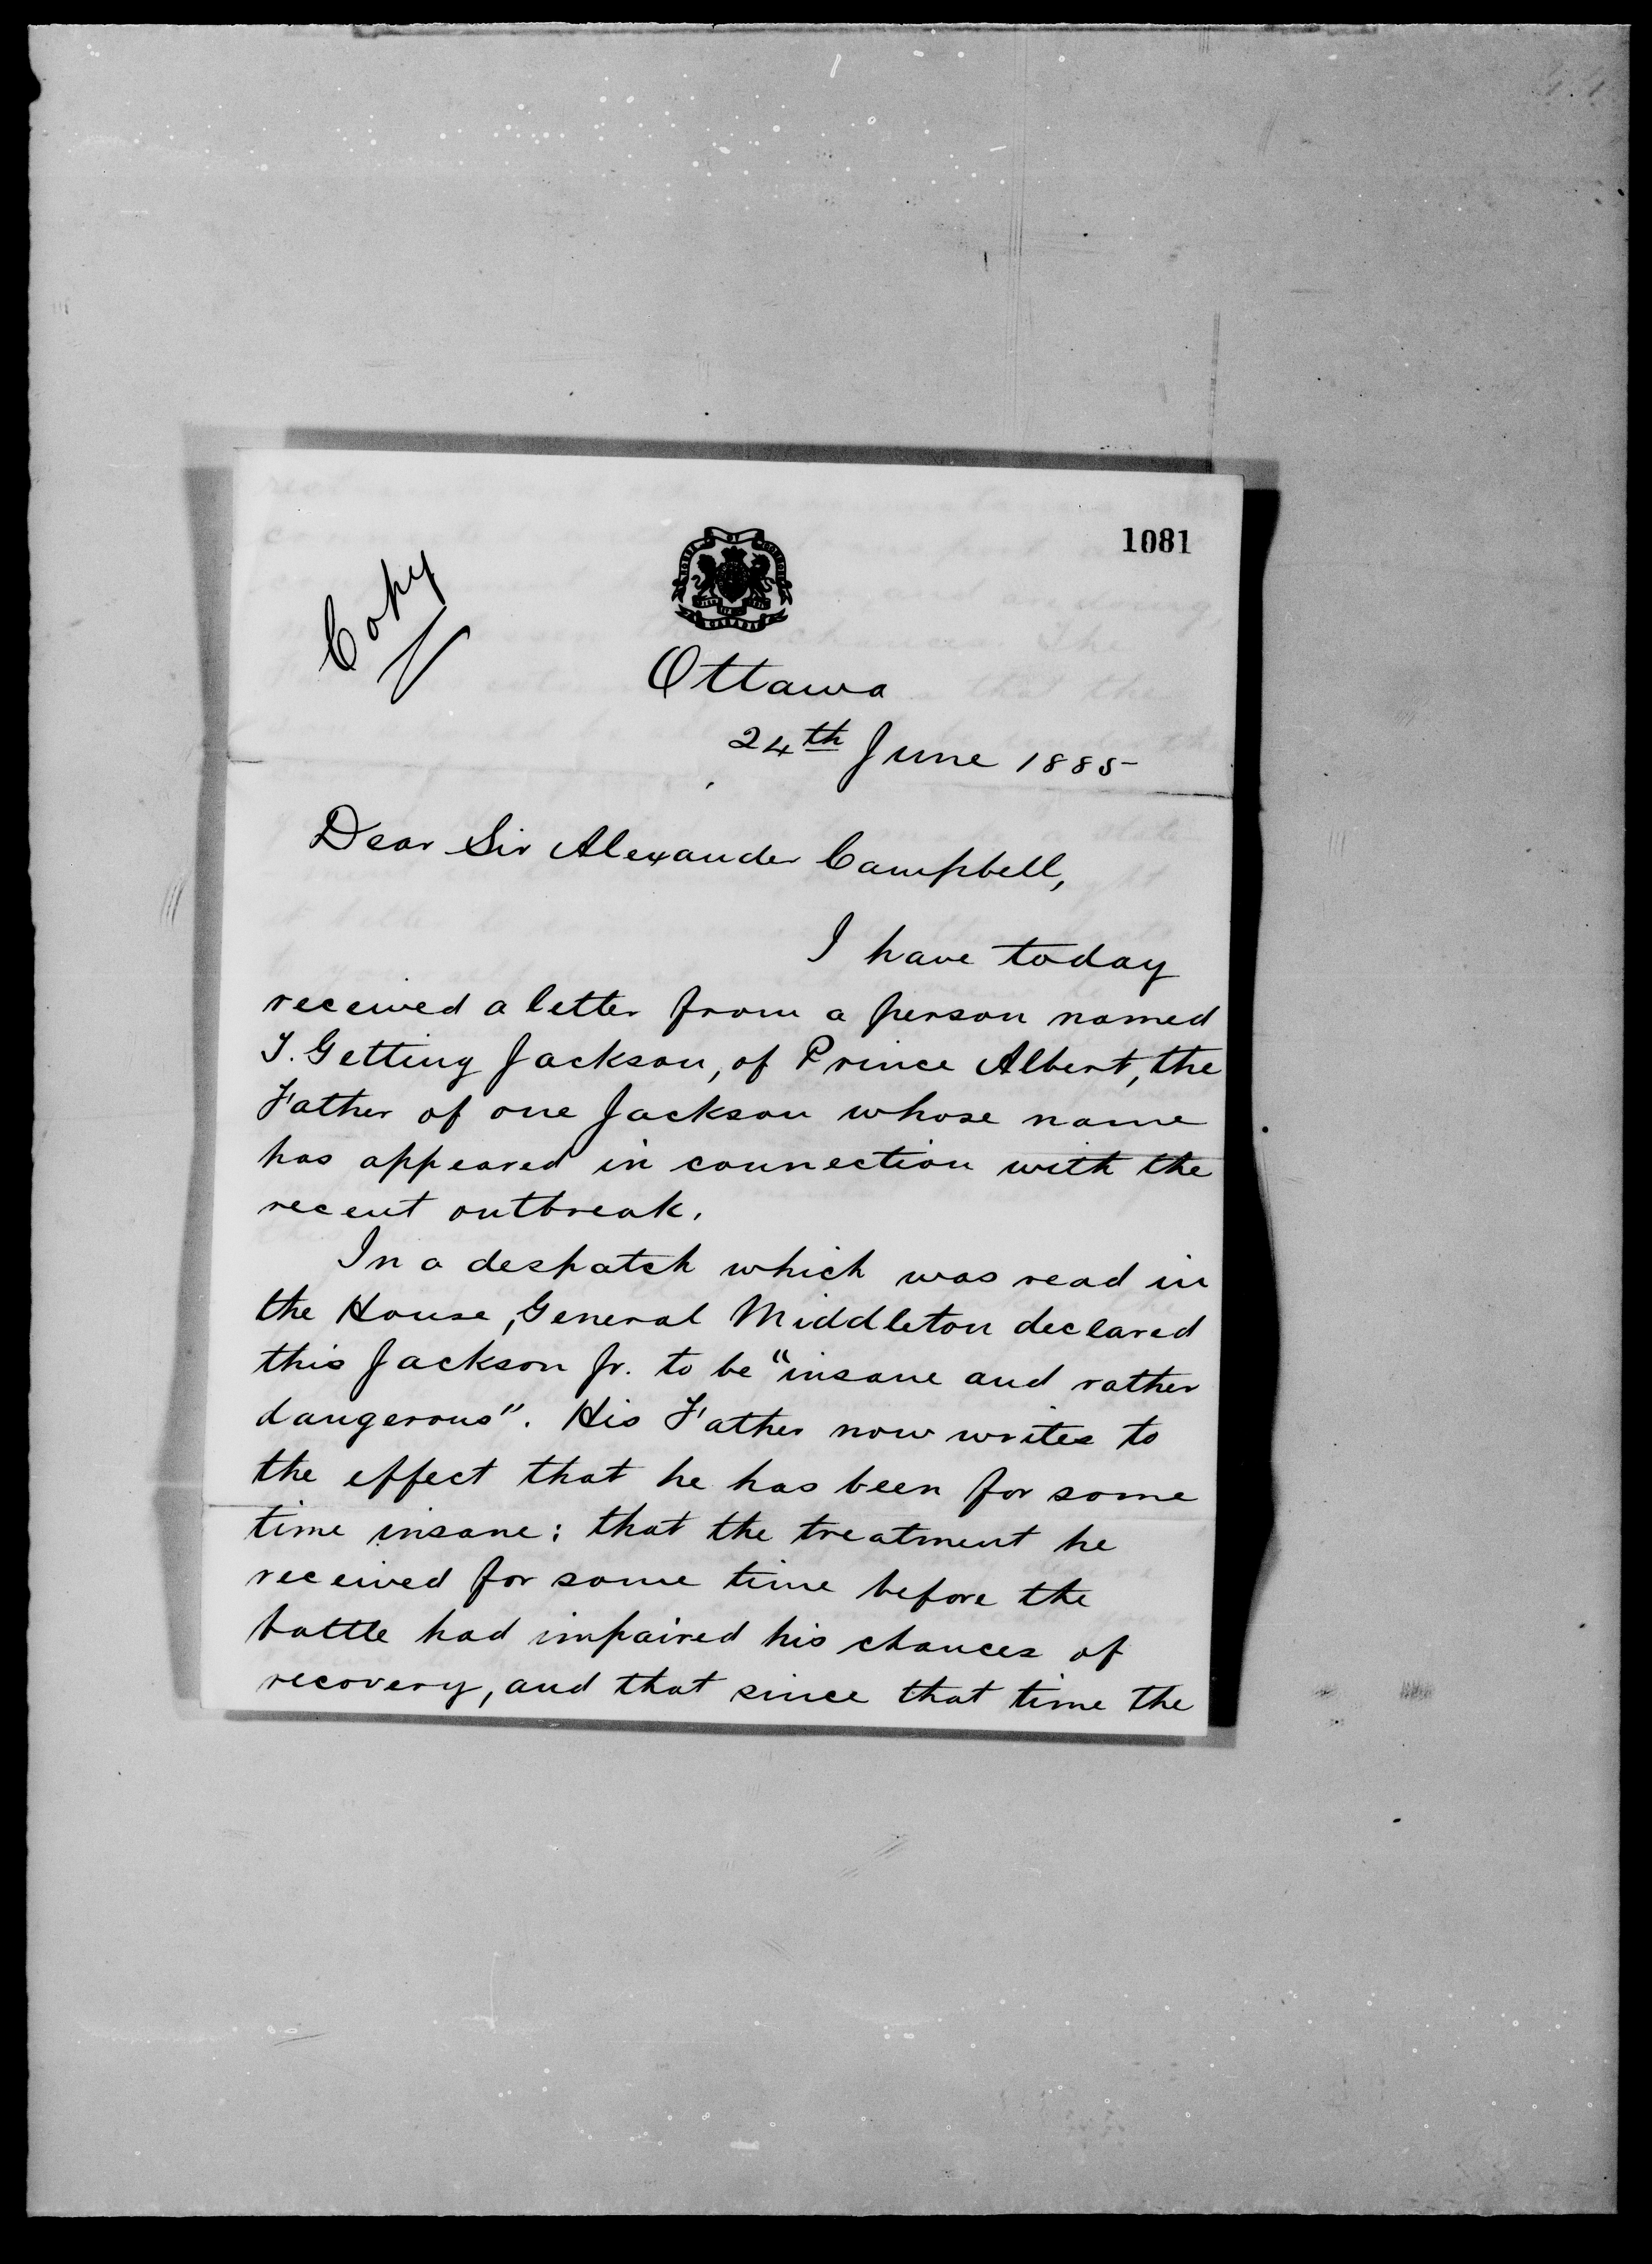 Copy
1081
HOUSE OF COMMONS
CANADA
Ottawa
24th June 1885
Dear Sir Alexander Campbell,
I have today
received a letter from a person named
T. Getting Jackson, of Prince Albert, the
Father of one Jackson whose name
has appeared in connection with the
recent outbreak.
In a despatch which was read in
the House, General Middleton declared
this Jackson Jr. to be "insane and rather
dangerous". His Father now writes to
the effect that he has been for some
time insane: that the treatment he
received for some time before the
battle had impaired his chances of
recovery, and that since that time the